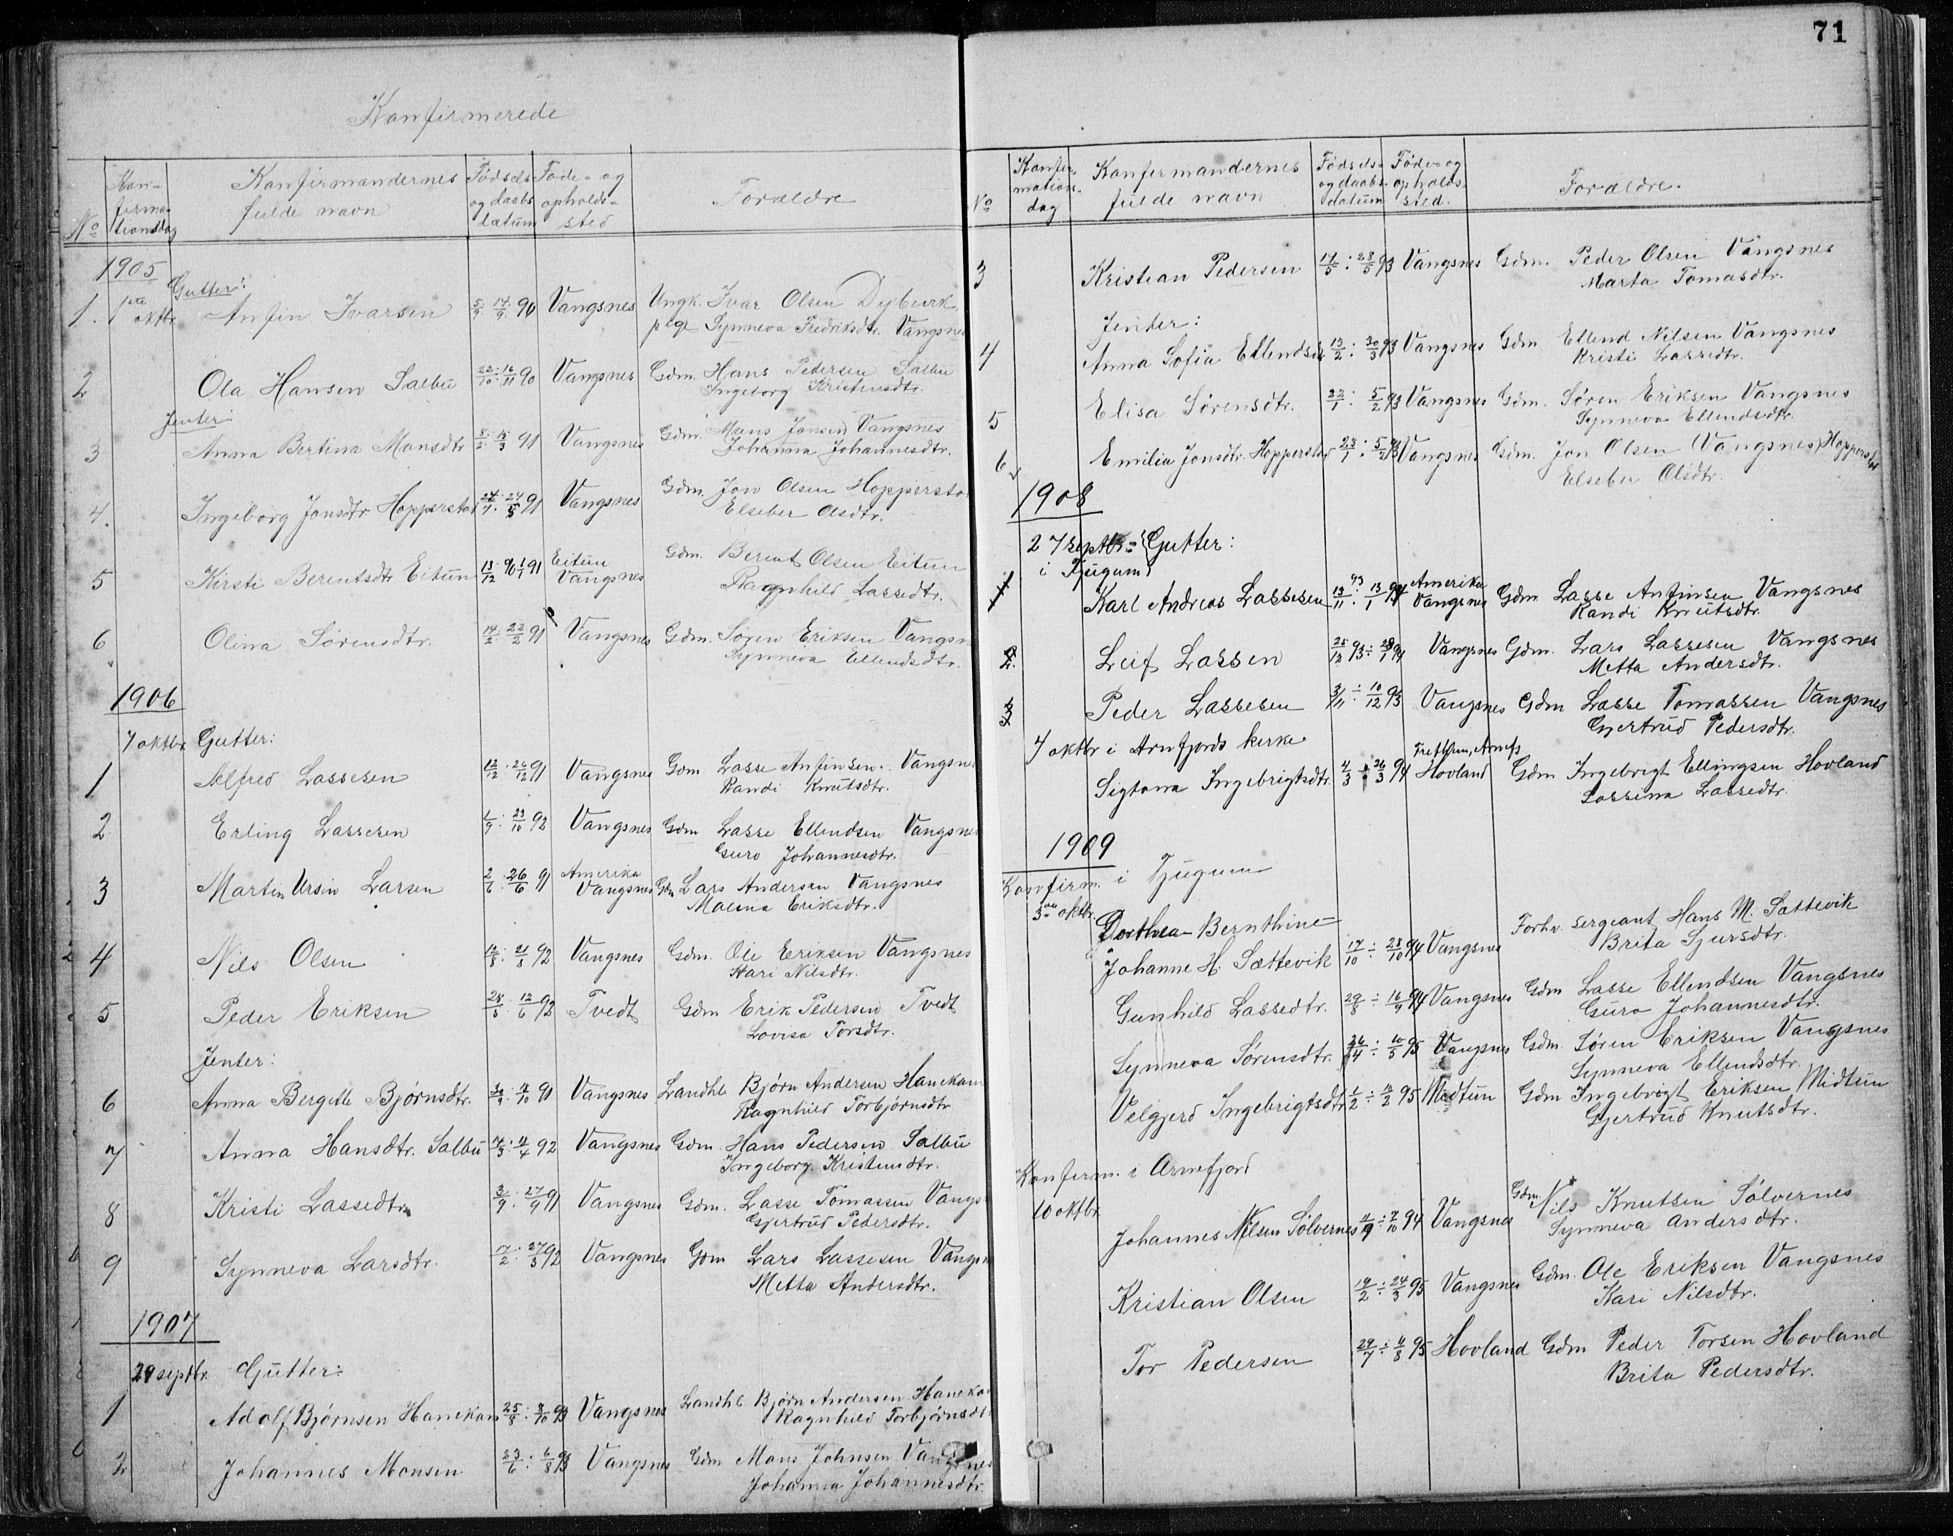 71
Konfirmerede
No Konfirmationsdag Konfirmandernes fulde navn Fødsels og daabsdatum Føde- og opholdssted Forældre
1905
Gutter:
1. 1ste oktbr. Anfin Ivarsen 5/9 : 14/9 90 Vangsnes Ungk. Ivar Olsen Dybvik,
pige Synneva Fredriksdtr. Vangsnes
2 Ola Hansen Salbu 22/10 : 16/11 90 Vangsnes Gdm. Hans Pedersen Salbu
Ingeborg Kristensdtr.
Jenter:
3 Anna Bertina Monsdtr 8/2 : 15/3 91 Vangsnes Gdm. Mons Jonsen Vangsnes
Johanna Johannesdtr.
4. Ingeborg Jonsdtr Hopperstad Vangsnes Gdm. Jon Olsen Hopperstad
Elseber Olsdtr.
5 Kirsti Berentsdtr Eitun 13/12 90 1/1 91 Eitun Vangsnes Gdm. Berent Olsen Eitun
Ragnhild Lassedtr.
6 Olina Sørensdtr. 14/2 : 22/2 91 Vangsnes Gdm. Søren Eriksen Vangsn
Synneva Ellendsdtr.
1906
7 oktbr. Gutter:
1 Alfred Lassesen 12/12 : 26/12 91 Vangsnes Gdm Lasse Anfinsen Vangsne
Randi Knutsdtr.
2 Erling Lassesen 23/10 92 Vangsnes Gdm Lasse Ellendsen Vangsne
Guro Johannesdtr.
3 Martin Ursin Larsen 2/6 : 26/6 91 Amerika Vangsnes Gdm Lars Andersen Vangsnes
Malena Eriksdtr.
4 Nils Olsen 12/8 : 21/8 92 Vangsnes Gdm. Ole Eriksen Vangsnes
Kari Nilsdtr.
5 Peder Eriksen 28/5 : 12/6 92 Tvedt Gdm Erik Pedersen Tvedt
Lovisa Torsdtr.
Jenter:
6 Anna Bergitte Bjørnsdtr. Vangsnes Landhl. Bjørn Andersen Hanekam
Ragnhild Torbjørnsdtr
7 Anna Hansdtr. Salbu Vangsnes Gdm. Hans Pedersen Salbu
Ingeborg Kristensdtr.
8 Kristi Lassedtr. 3/9 : 27/9 91 Vangsnes Gdm. Lasse Tomassen Vangs
Gjertrud Pedersdtr.
9 Synneva Larsdtr. 17/2 : 27/3 92 Vangsnes Gdm Lars Lassesen Vangsn
Metta Andersdtr.
1907
29 septbr. Gutter:
1 Adolf Bjørnsen Hanekam 25/8 : 8/10 93 Vangsnes Landhl. Bjørn Andersen Haneka
Ragnhild Torbjørnsdt
2 Johannes Monsen 23/6 : 6/8 93 Vangsnes Gdm Mons Johnsen Vangsnes
Johanna Johannesdtr.
No Konfirmationsdag Konfirmandernes fulde navn Fødsels- og daabsdatum Føde- og opholdssted. Forældre.
3 Kristian Pedersen 17/5 : 28/5 93 Vangsnes Gdm. Peder Olsen Vangsnes
Marta Tomasdtr.
Jenter:
4 Anna Sofia Ellendsdtr 13/2 : 30/3 93 Vangsnes Gdm Ellend Nilsen Vangsnes
Kristi Lassedtr.
5 Elisa Sørensdtr. 22/1 : 5/2 93 Vangsnes Gdm. Søren Eriksen Vangsnes
Synneva Ellendsdtr.
6 Emilia Jonsdtr. Hopperstad 23/1 : 5/2 93 Vangsnes Gdm. Jon Olsen (Vangsnes) Hopperstad
Elseber Olsdtr.
1908
27 septbr. Gutter:
i Tjugum
1 Karl Andreas Lassesen 13/11 93 : 13/1 94 Amerika Vangsnes Gdm Lasse Anfinsen Vangsnes
Randi Knutsdtr.
2. Leif Lassen 25/12 93 : 28/1 94 Vangsnes Gdm. Lars Lassesen Vangsnes
Metta Andersdtr.
3 Peder Lassesen 3/11 : 10/12 93 Vangsnes Gdm Lasse Tomassen Vangsnes
Gjertrud Pedersdtr.
7 oktbr i Arnfjords kirke
Sigtona Ingebrigtsdtr. 4/3 : 26/3 94 Hovland Gdm Ingebrigt Ellingsen Hovland
Lassina Lassedtr.
1909
Konfirm. i Tjugum
3die oktbr. Dorthea Bernthine
Johanne H. Sættevik 17/10 : 28/10 94 Vangsnes Forhv. sergeant Hans M. Sættevik
Brita Sjursdtr.
Gunhild Lassedtr. 29/8 : 16/9 94 Vangsnes Gdm Lasse Ellendsen Vangsnes
Guro Johannesdtr.
Synneva Sørensdtr. 26/4 : 10/5 95 Vangsnes Gdm. Søren Eriksen Vangsnes
Synneva Ellendsdtr.
Velgjerd Ingebrigtsdtr. Midtun Gdm Ingebrigt Eriksen Midtun
Gjertrud Knutsdtr.
Konfirm. i Arnefjord
10 oktbr. Johannes Nilsen Sølvernes 4/9 : 7/10 94 Vangsnes Gdm. Nils Knutsen Sølvernes
Synneva Andersdtr.
Kristian Olsen 14/2 : 24/3 95 Vangsnes Gdm. Ole Eriksen Vangsnes
Kari Nilsdtr.
Tor Pedersen 29/7 : 4/8 95 Hovland Gdm Peder Torsen Hovland
Brita Pedersdtr.